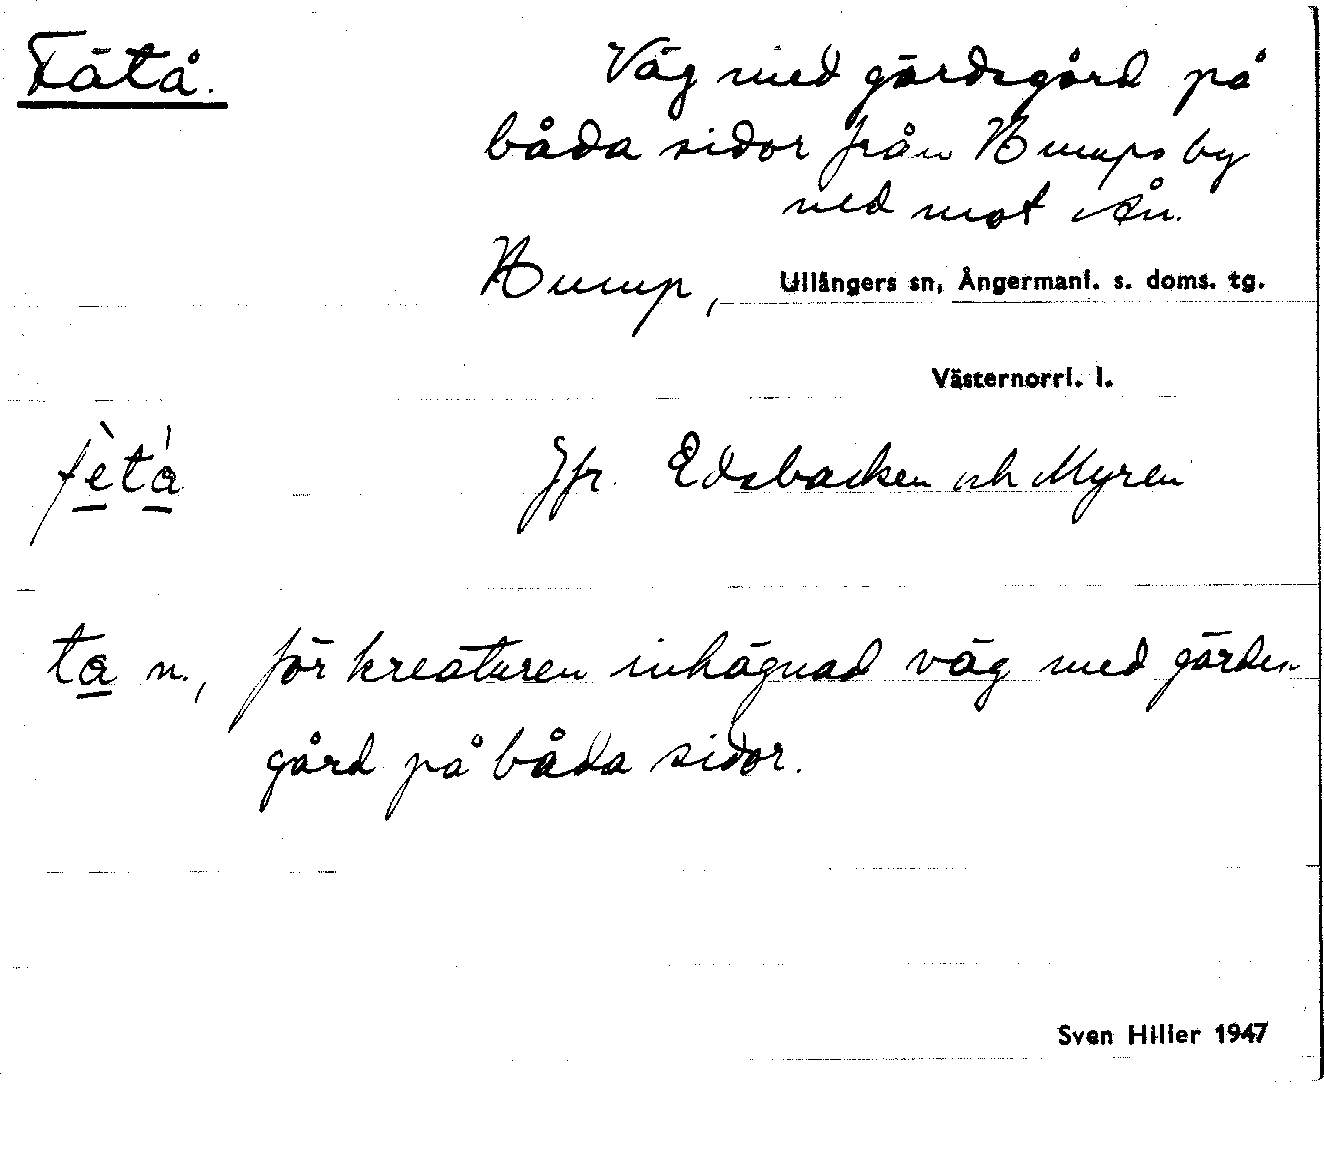 Fätå.
Väg med gärdsgård på
båda sidor från Bumps by
ned mot ån.
Bump, Ullångers sn, Ångermanl. s. doms. tg.
Västernorrl. l.
fètá Jfr. Edsbacken och Myren
ta n., för kreaturen inhägnad väg med gärdes-
gård på båda sidor.
Sven Hiller 1947